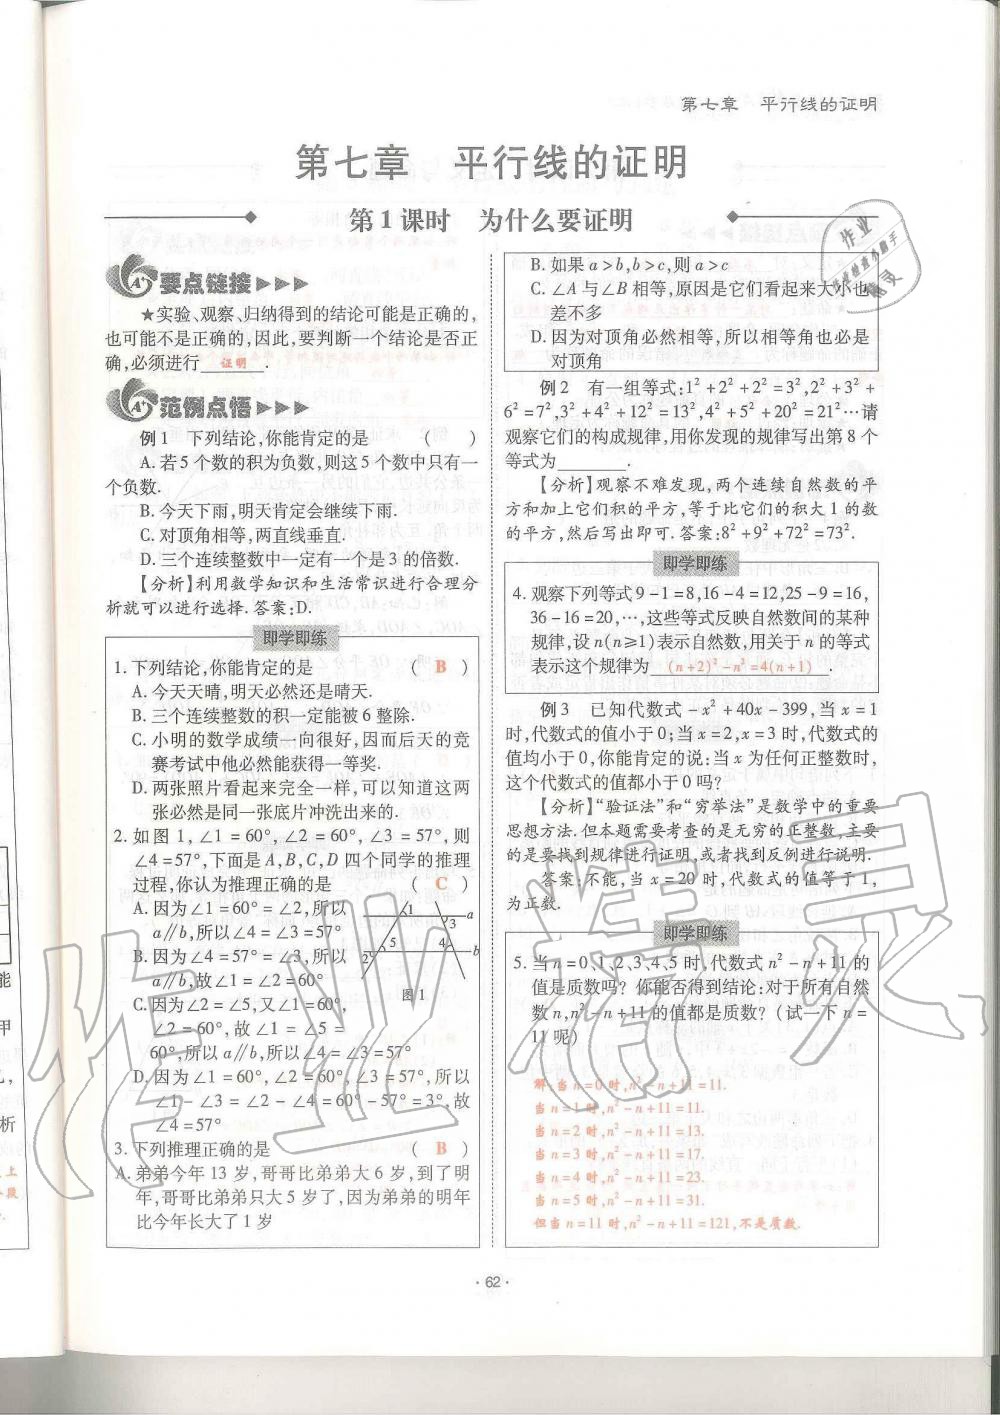 第七章 平行线的证明
第七章 平行线的证明
第1课时 为什么要证明
要点链接
★实验、观察、归纳得到的结论可能是正确的,
也可能不是正确的,因此,要判断一个结论是否正
确,必须进行 证明 .
范例点悟
例1 下列结论,你能肯定的是 ( )
A.若5个数的积为负数,则这5个数中只有一
个负数.
B.今天下雨,明天肯定会继续下雨.
C.对顶角相等,两直线垂直.
D.三个连续整数中一定有一个是3的倍数.
【分析】利用数学知识和生活常识进行合理分
析就可以进行选择.答案:D.
即学即练
1.下列结论,你能肯定的是 ( B )
A.今天天晴,明天必然还是晴天.
B.三个连续整数的积一定能被6整除.
C.小明的数学成绩一向很好,因而后天的竞
赛考试中他必然能获得一等奖.
D.两张照片看起来完全一样,可以知道这两
张必然是同一张底片冲洗出来的.
2.如图1,∠1=60°,∠2=60°,∠3=57°,则
∠4=57°,下面是A,B,C,D四个同学的推理
过程,你认为推理正确的是 ( C )
A.因为∠1=60°=∠2,所以
a∥b,所以∠4=∠3=57°
B.因为∠4=57°=∠3,所以
a∥b,故∠1=∠2=60°
C.因为∠2=∠5,又∠1=60°,
∠2=60°,故∠1=∠5=
60°,所以a∥b,所以∠4=∠3=57°
D.因为∠1=60°,∠2=60°,∠3=57°,所以
∠1-∠3=∠2-∠4=60°-57°=3°,故
∠4=57°
1
2
3
a
5
4
b
图1
3.下列推理正确的是 ( B )
A.弟弟今年13岁,哥哥比弟弟大6岁,到了明
年,哥哥比弟弟只大5岁了,因为弟弟的明年
比今年长大了1岁
B.如果a>b,b>c,则a>c
C.∠A与∠B相等,原因是它们看起来大小也
差不多
D.因为对顶角必然相等,所以相等角也必是
对顶角
例2 有一组等式:1²+2²+2²=3²,2²+3²+
6²=7²,3²+4²+12²=13²,4²+5²+20²=21²…请
观察它们的构成规律,用你发现的规律写出第8个
等式为 .
【分析】观察不难发现,两个连续自然数的平
方和加上它们积的平方,等于比它们的积大1的数
的平方,然后写出即可.答案:8²+9²+72²=73².
即学即练
4.观察下列等式9-1=8,16-4=12,25-9=16,
36-16=20,…,这些等式反映自然数间的某种
规律,设n(n≥1)表示自然数,用关于n的等式
表示这个规律为 (n+2)²-n²=4(n+1)
例3 已知代数式-x²+40x-399,当x=1
时,代数式的值小于0;当x=2,x=3时,代数式的
值均小于0,你能肯定的说:当x为任何正整数时,
这个代数式的值都小于0吗?
【分析】“验证法”和“穷举法”是数学中的重要
思想方法.但本题需要考查的是无穷的正整数,主要
的是要找到规律进行证明,或者找到反例进行说明.
答案:不能,当x=20时,代数式的值等于1,
为正数.
即学即练
5.当n=0、1、2、3、4、5时,代数式n²-n+11的
值是质数吗?你能否得到结论:对于所有自然
数n,n²-n+11的值都是质数?(试一下n=
11呢)
解:当n=0时,n²-n+11=11.
当n=1时,n²-n+11=11.
当n=2时,n²-n+11=13.
当n=3时,n²-n+11=17.
当n=4时,n²-n+11=23.
当n=5时,n²-n+11=31.
但当n=11时,n²-n+11=121,不是质数.
·62·
作业精灵